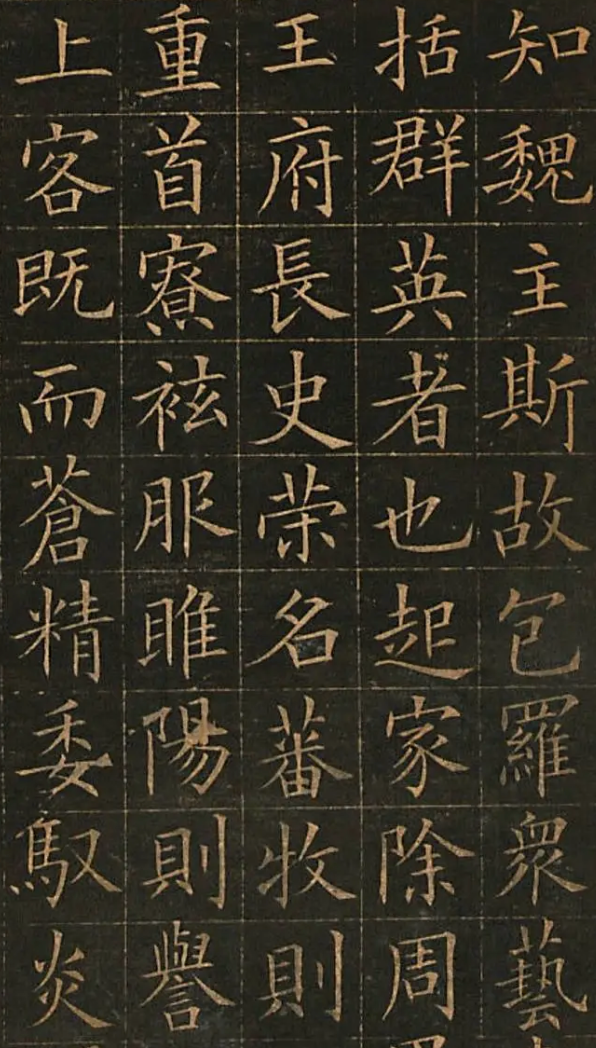 知魏主斯故包羅衆藝
括群英者也起家除周
王府長史榮名蕃牧則
重首寮袨服睢陽則譽
上客既而蒼精委馭炎